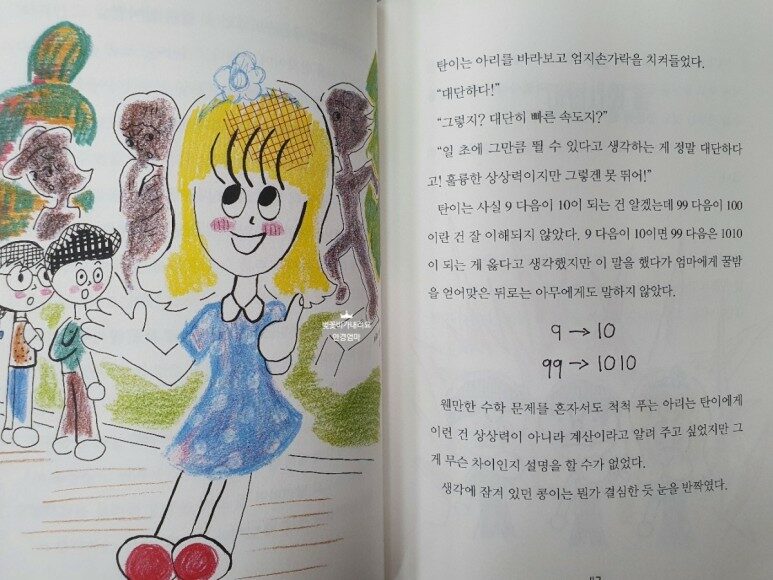 탄이는 아리를 바라보고 엄지손가락을 치켜들었다.
“대단하다!”
“그렇지? 대단히 빠른 속도지?”
“일 초에 그만큼 뛸 수 있다고 생각하는 게 정말 대단하다
고! 훌륭한 상상력이지만 그렇겐 못 뛰어!”
탄이는 사실 9 다음이 10이 되는 건 알겠는데 99 다음이 100
이란 건 잘 이해되지 않았다. 9 다음이 10이면 99 다음은 1010
이 되는 게 옳다고 생각했지만 이 말을 했다가 엄마에게 꿀밤
을 얻어맞은 뒤로는 아무에게도 말하지 않았다.
9 → 10
99 → 1010
웬만한 수학 문제를 혼자서도 척척 푸는 아리는 탄이에게
이런 건 상상력이 아니라 계산이라고 알려 주고 싶었지만 그
게 무슨 차이인지 설명을 할 수가 없었다.
생각에 잠겨 있던 콩이는 뭔가 결심한 듯 눈을 반짝였다.